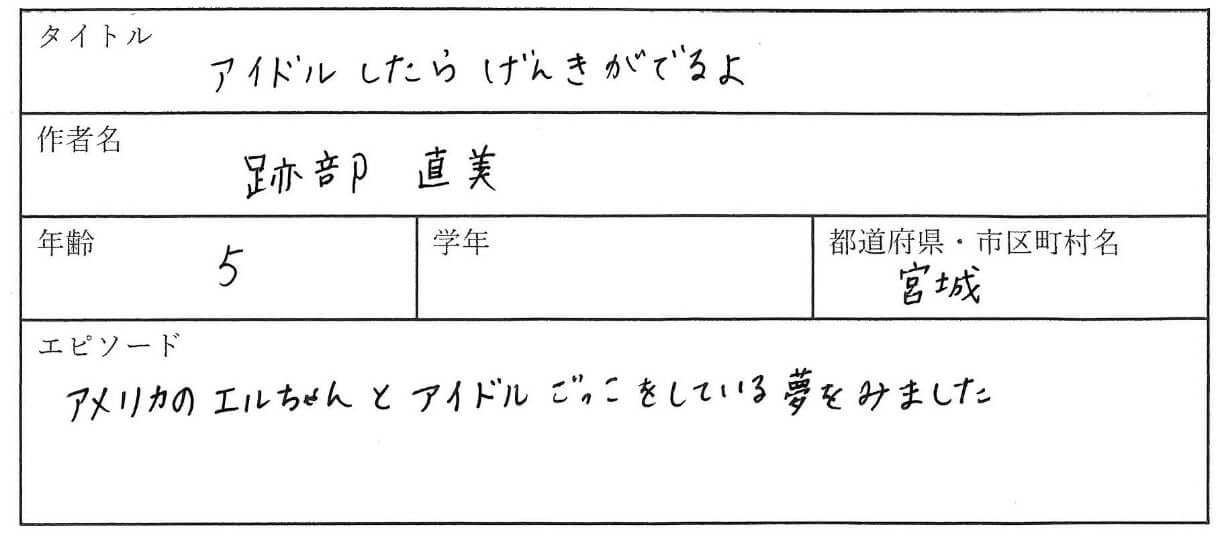 タイトル
アイドルしたらげんきがでるよ
作者名
跡部 直美
年齢
5
学年
都道府県・市区町村名
宮城
エピソード
アメリカのエルちゃんとアイドルごっこをしている夢をみました